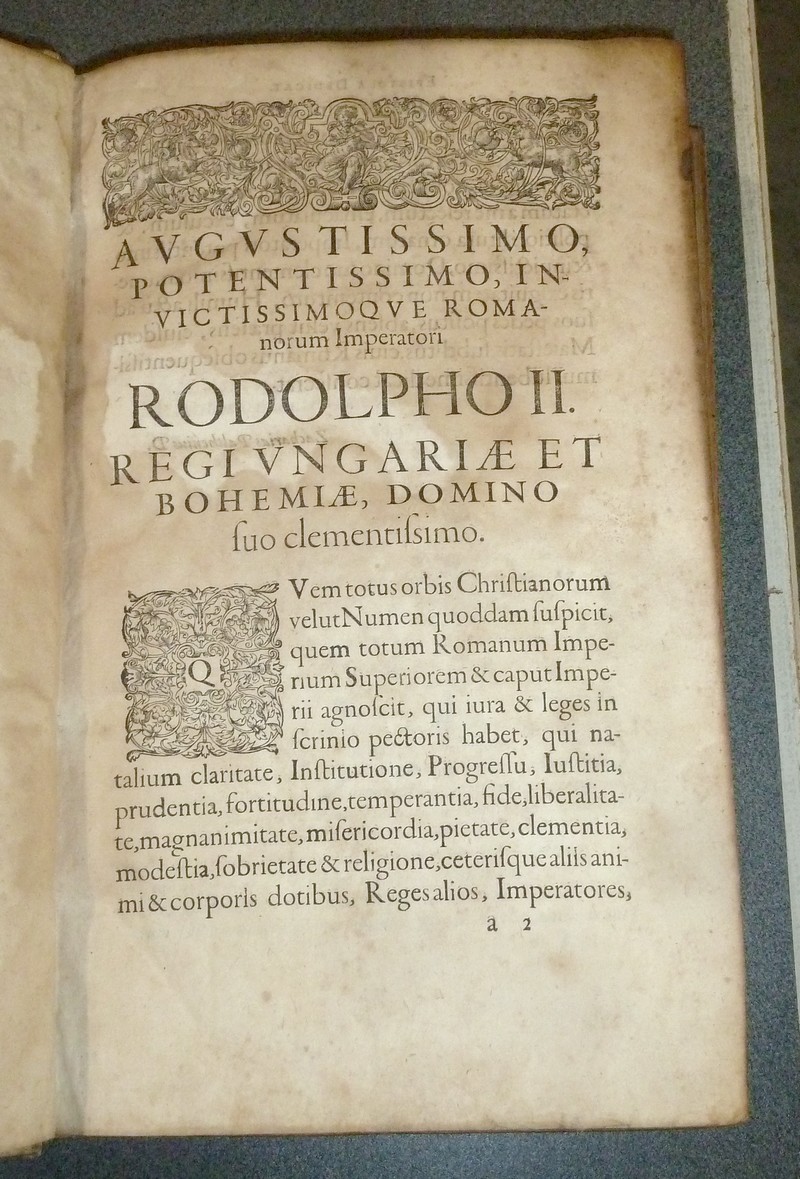 AVGVSTISSIMO,
POTENTISSIMO, IN-
VICTISSIMOQVE ROMA-
norum Imperatori
RODOLPHO II.
REGI VNGARIÆ ET
BOHEMIÆ, DOMINO
ſuo clementiſsimo.
QVem totus orbis Chriſtianorum
velut Numen quoddam ſuſpicit,
quem totum Romanum Impe-
rium Superiorem & caput Impe-
rii agnoſcit, qui iura & leges in
ſcrinio pectoris habet, qui na-
talium claritate, Inſtitutione, Progreſſu, Iuſtitia,
prudentia, fortitudine, temperantia, fide, liberalita-
te, magnanimitate, miſericordia, pietate, clementia,
modeſtia, ſobrietate & religione, ceteriſque aliis ani-
mi & corporis dotibus, Reges alios, Imperatores,
a 2